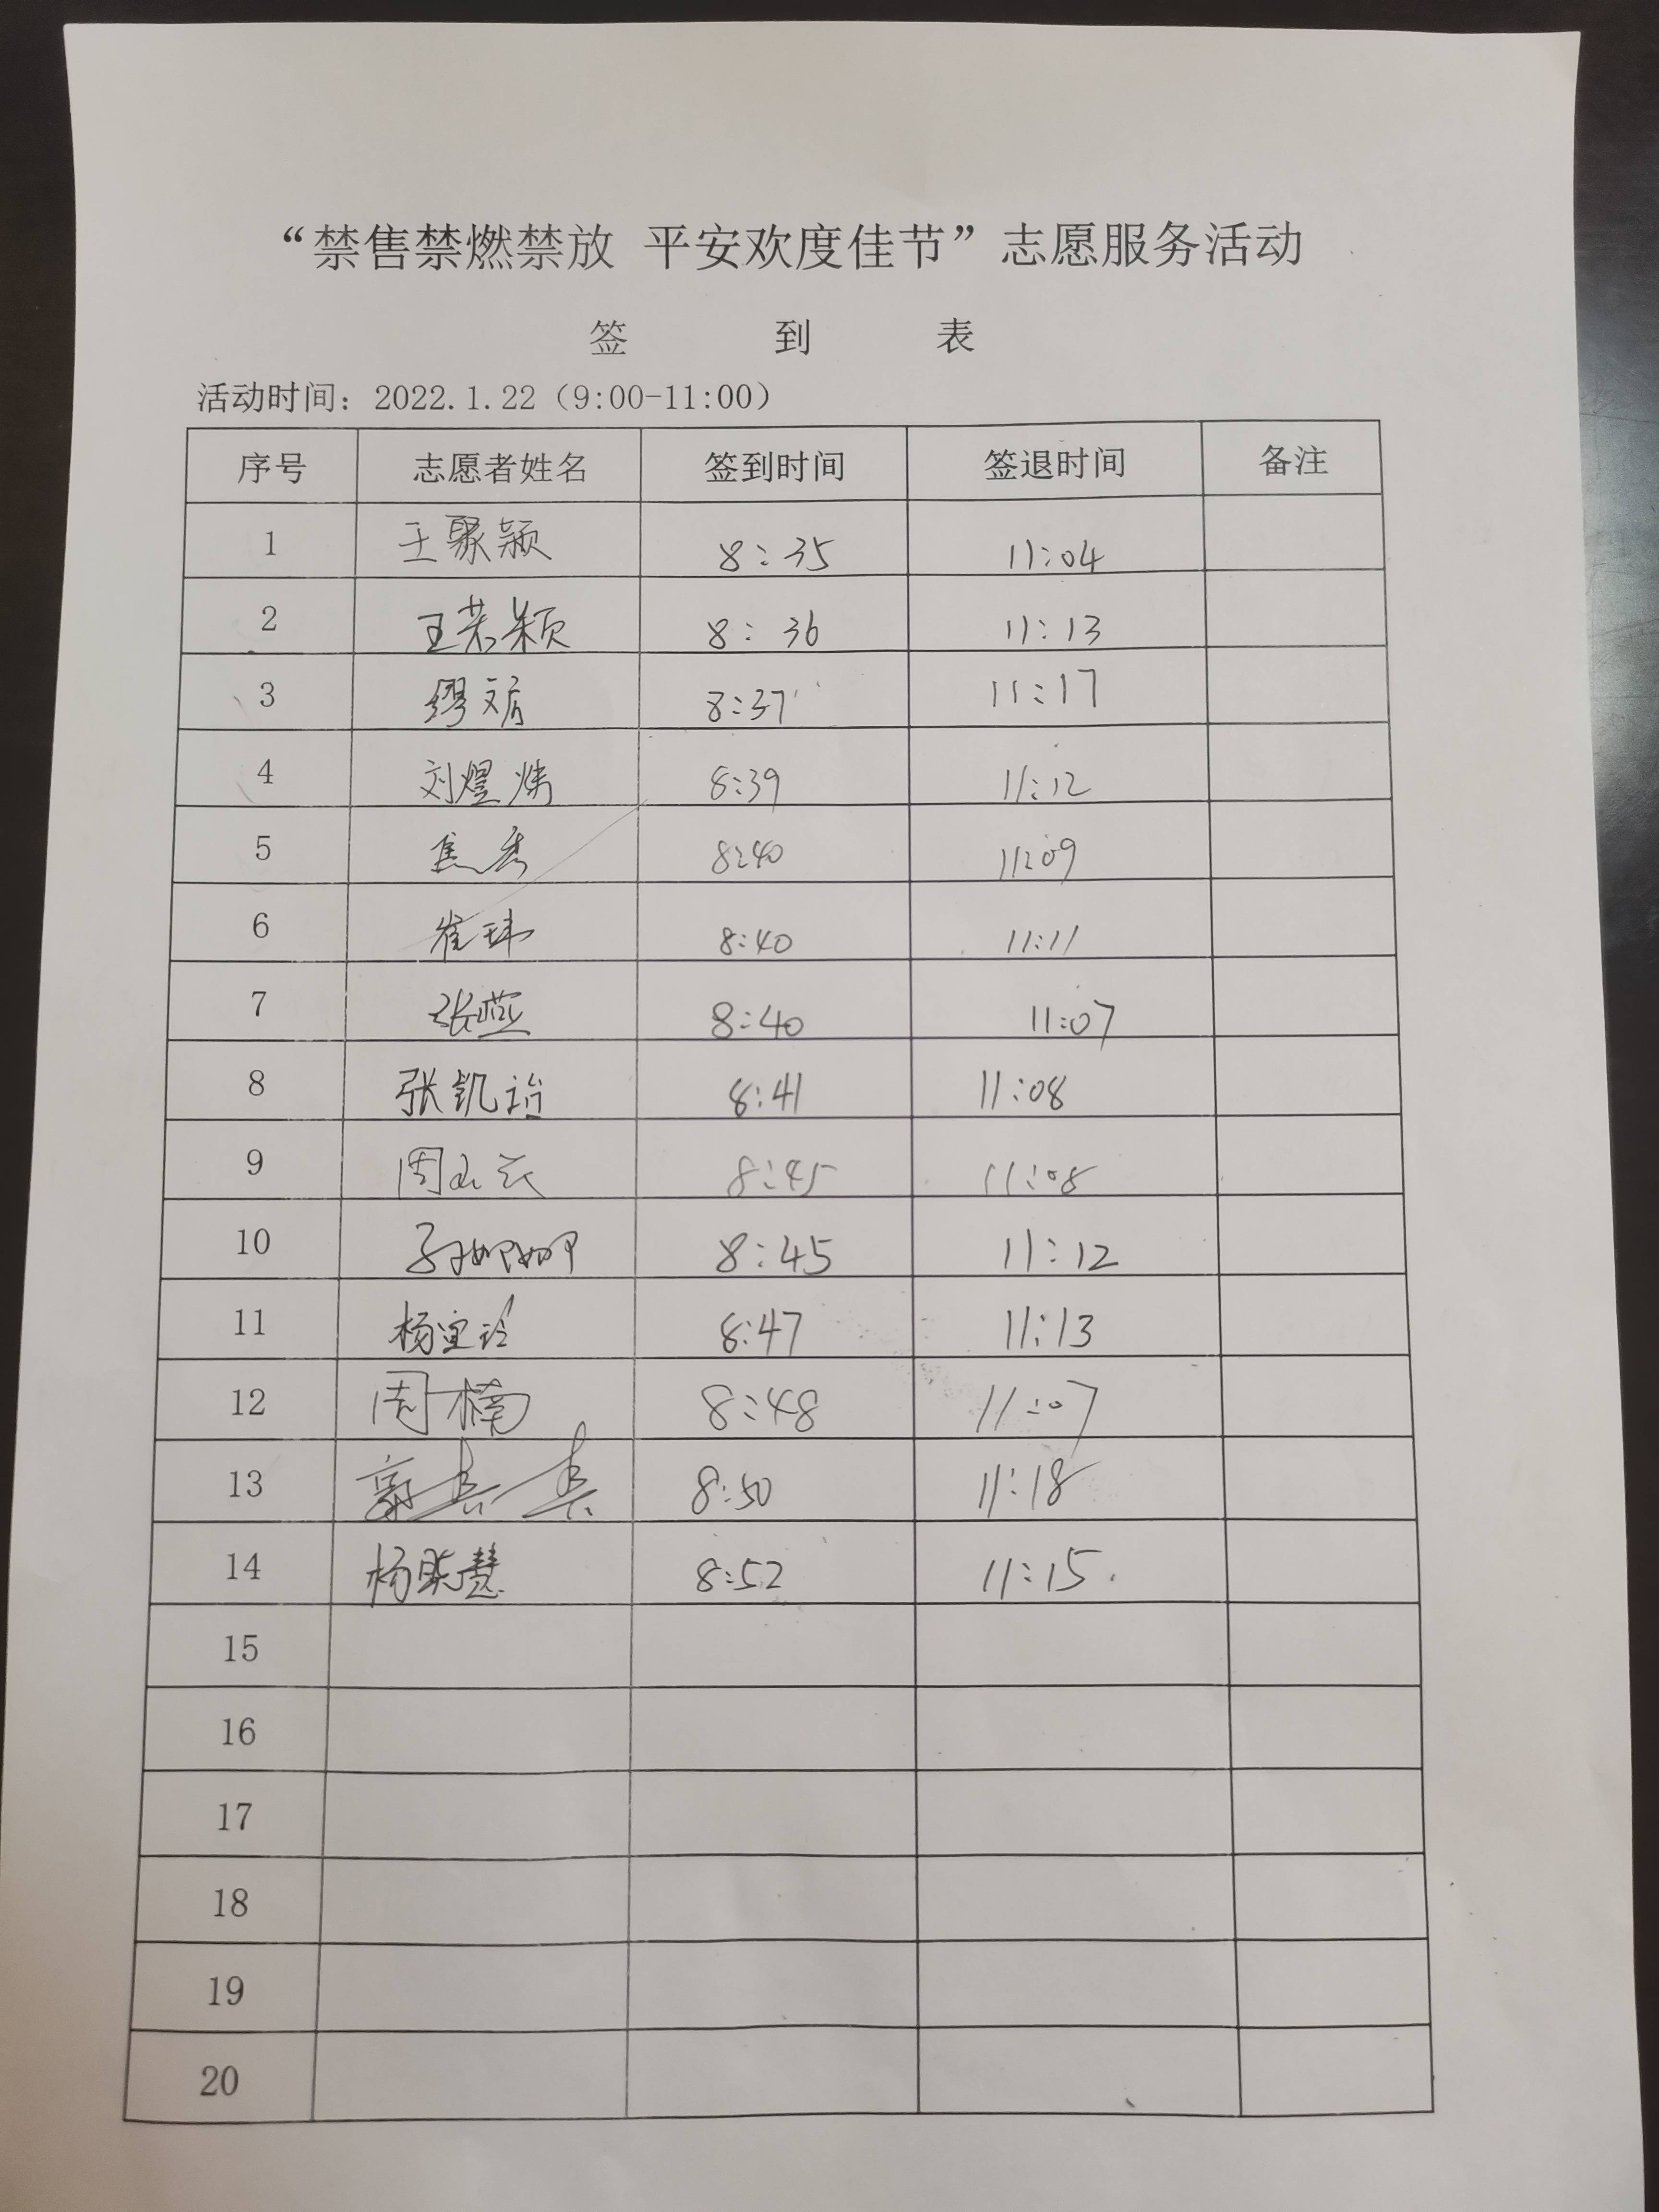 “禁售禁燃禁放 平安欢度佳节”志愿服务活动
签 到 表
活动时间：2022.1.22（9:00-11:00）
序号 志愿者姓名 签到时间 签退时间 备注
1 王聚颖 8:35 11:04
2 王若颖 8:36 11:13
3 缪 8:37 11:17
4 刘煜炜 8:39 11:12
5 焦秀 8:40 11:09
6 崔玮 8:40 11:11
7 张燕 8:40 11:07
8 张凯诒 8:41 11:08
9 周 8:45 11:08
10 孙娜娜 8:45 11:12
11 杨宜玲 8:47 11:13
12 周楠 8:48 11:07
13 8:50 11:18
14 杨晓慧 8:52 11:15
15
16
17
18
19
20